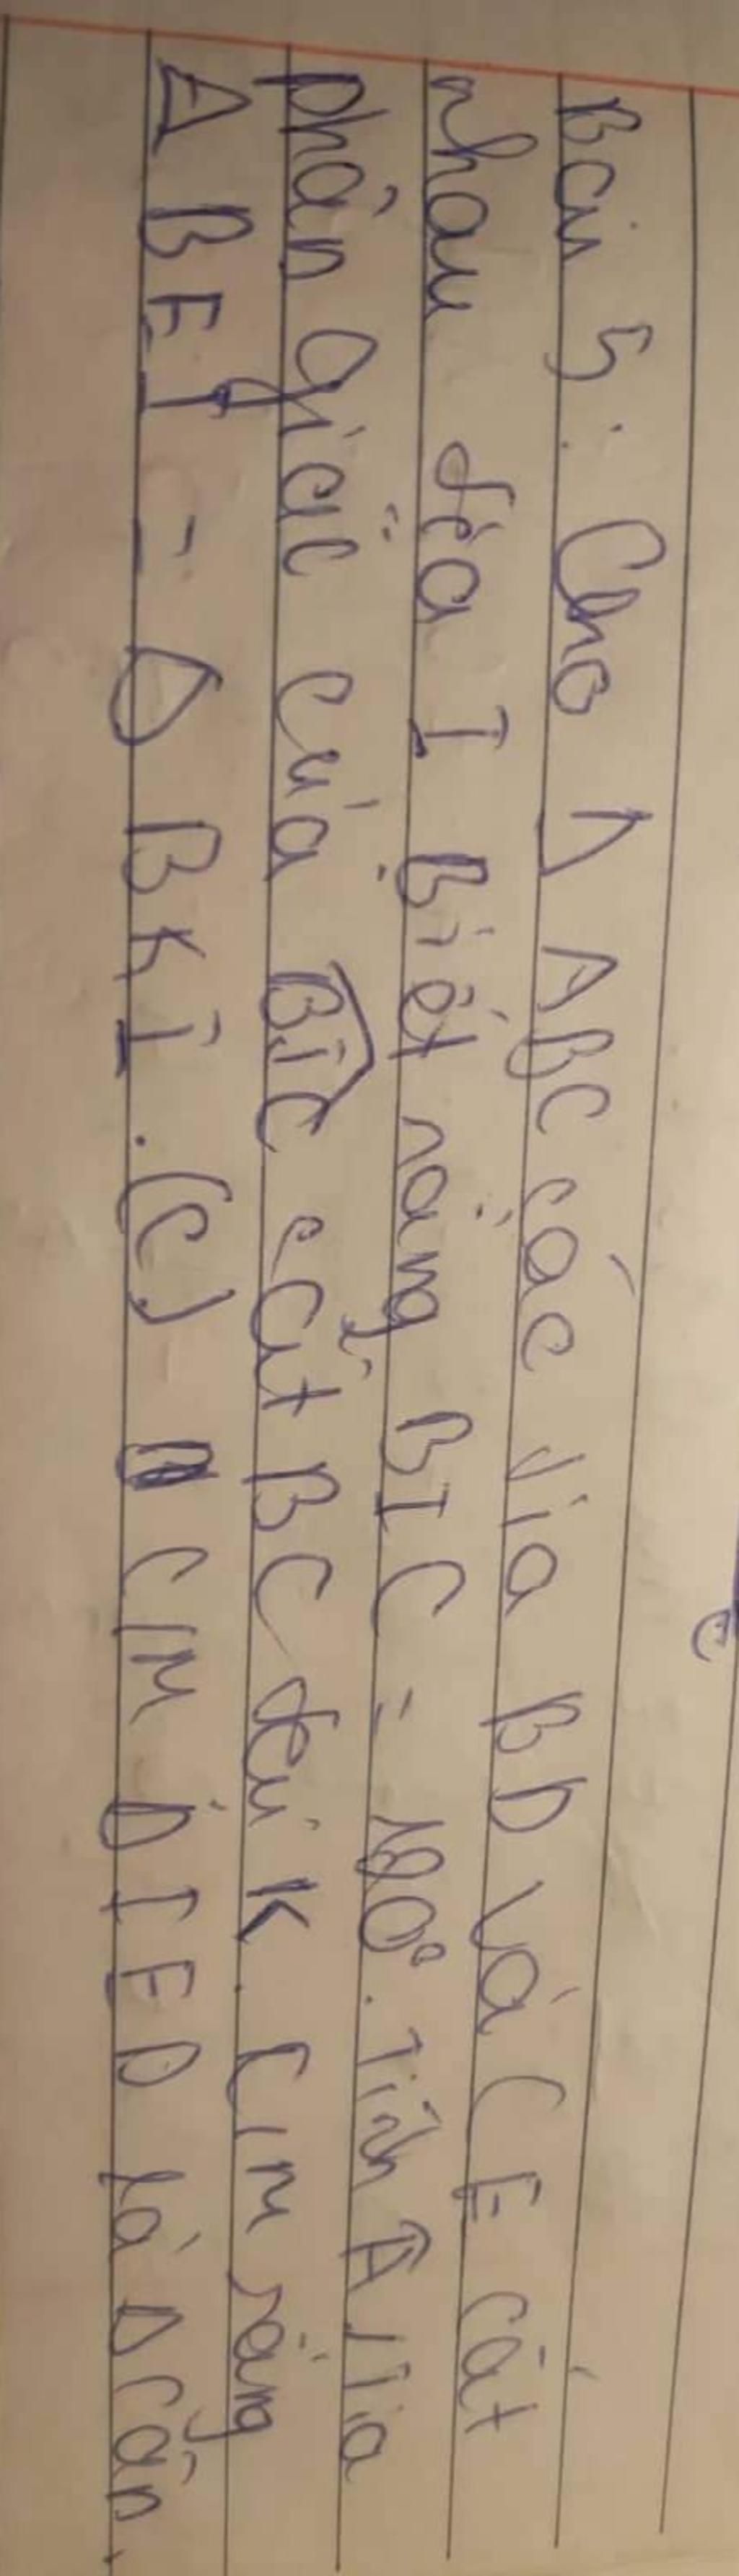 Bài 5: Cho Δ ABC các tia BD và CE cắt
nhau tại I Biết rằng BIC = 120°. Tính Â, Tia
phân giác của BIC cắt BC tại K. C/m rằng
Δ BEI = Δ BKI. (c) C/m Δ IED là Δ cân.